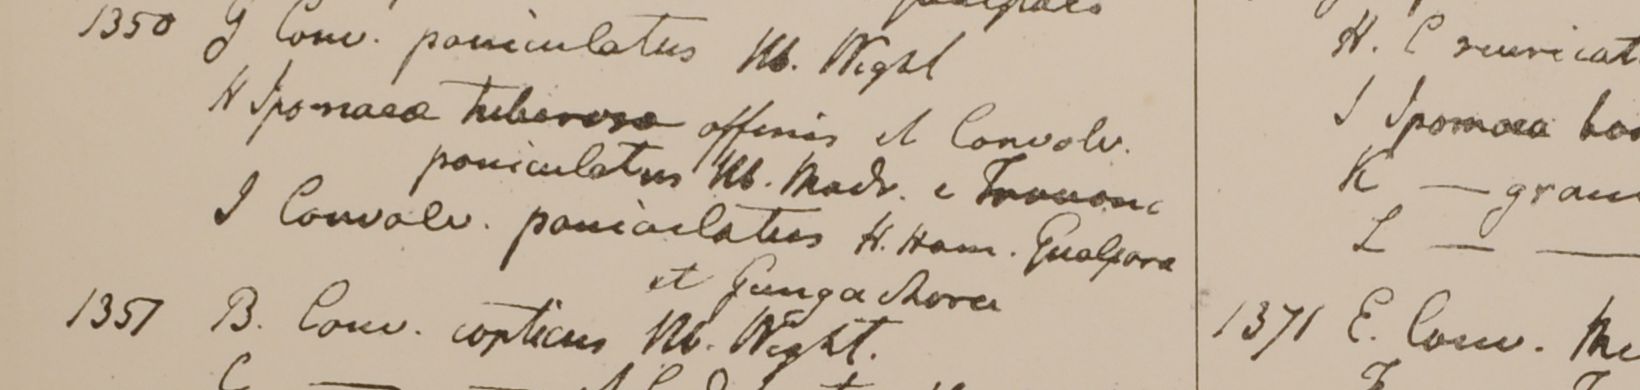 1350 G Conv. paniculatus Hb. Wight
H Ipomaea tuberosa affinis et Convolv.
paniculatus Hb. Madr. e Travanc
I Convolv. paniculatus H. Ham. Gualpara
et Gungachora
1357 B. Conv. copticus Hb. Wight.
C
H. C muricat
I Ipomaea
K — gran
L — —
1371 E. Conv.